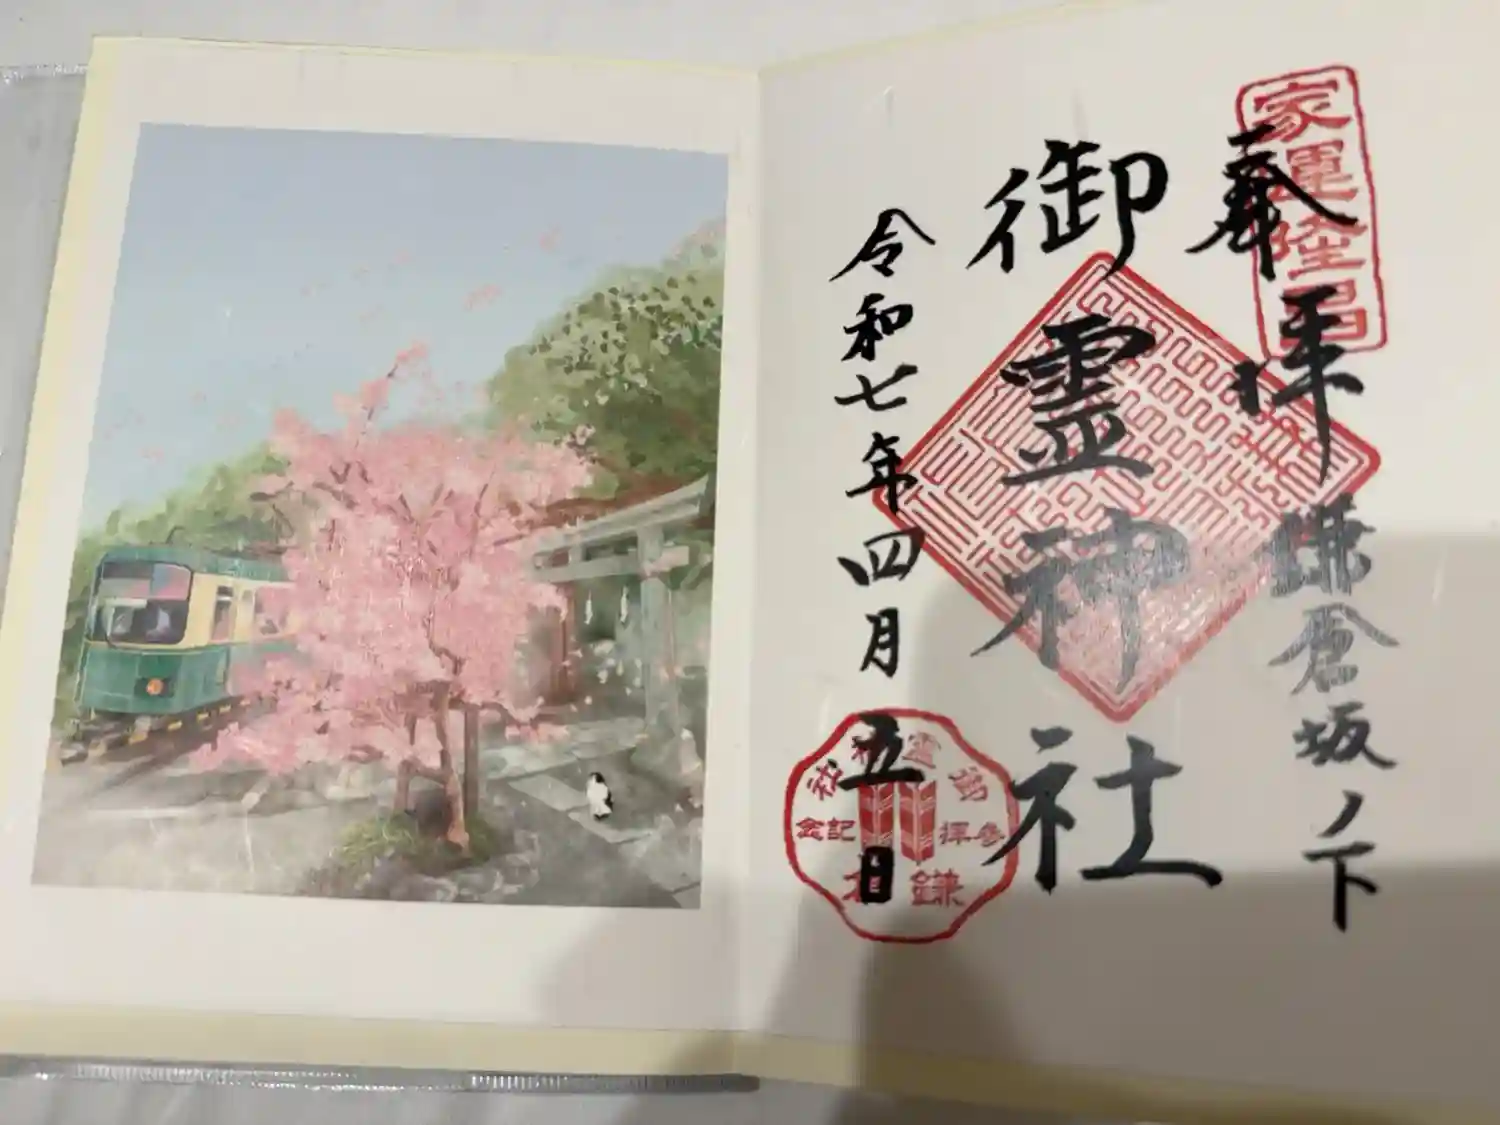 家運隆昌
奉拝
鎌倉坂ノ下
御霊神社
令和七年四月五日
御霊神社
参拝記念
鎌倉